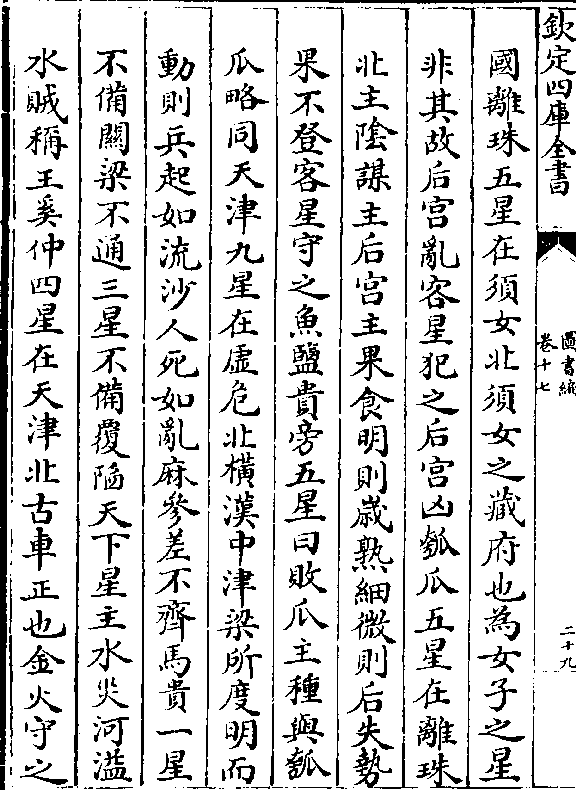 欽定四庫全書
圖書編
卷十七
二十九
國離珠五星在須女北須女之藏府也為女子之星
非其故后宮亂客星犯之后宮凶瓠瓜五星在離珠
北主陰謀主后宮主果食明則歲熟細微則后失勢
果不登客星守之魚鹽貴旁五星曰敗瓜主種與瓠
瓜略同天津九星在虛危北橫漢中津梁所度明而
動則兵起如流沙人死如亂麻參差不齊馬貴一星
不備關梁不通三星不備覆陷天下星主水災河溢
水賊稱王奚仲四星在天津北古車正也金火守之